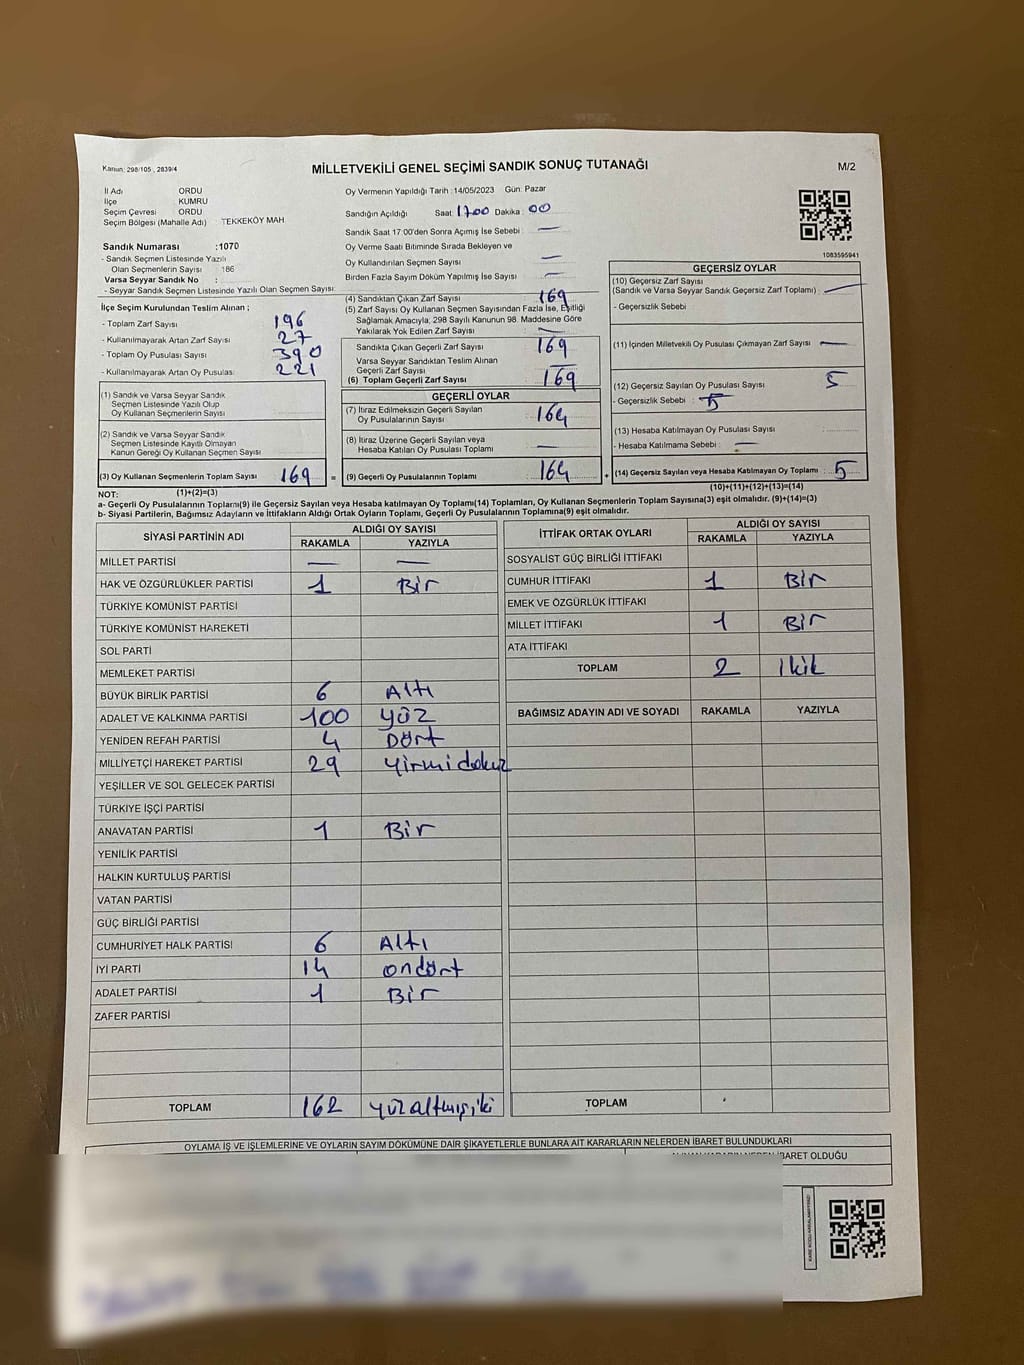 Kanun: 298/105 , 2839/4
MİLLETVEKİLİ GENEL SEÇİMİ SANDIK SONUÇ TUTANAĞI
M/2
İl Adı ORDU
İlçe KUMRU
Seçim Çevresi ORDU
Seçim Bölgesi (Mahalle Adı) : TEKKEKÖY MAH.
Sandık Numarası :1070
- Sandık Seçmen Listesinde Yazılı
Olan Seçmenlerin Sayısı : 186
Varsa Seyyar Sandık No :
- Seyyar Sandık Seçmen Listesinde Yazılı Olan Seçmen Sayısı:
İlçe Seçim Kurulundan Teslim Alınan ;
- Toplam Zarf Sayısı 196
- Kullanılmayarak Artan Zarf Sayısı 27
- Toplam Oy Pusulası Sayısı 390
- Kullanılmayarak Artan Oy Pusulası: 221
(1) Sandık ve Varsa Seyyar Sandık
Seçmen Listesinde Yazılı Olup
Oy Kullanan Seçmenlerin Sayısı
(2) Sandık ve Varsa Seyyar Sandık
Seçmen Listesinde Kayıtlı Olmayan
Kanun Gereği Oy Kullanan Seçmen Sayısı
(3) Oy Kullanan Seçmenlerin Toplam Sayısı 169
(1)+(2)=(3)
Oy Vermenin Yapıldığı Tarih : 14/05/2023 Gün: Pazar
Sandığın Açıldığı Saat: 1700 Dakika : 00
Sandık Saat 17:00'den Sonra Açımış İse Sebebi : —
Oy Verme Saati Bitiminde Sırada Bekleyen ve
Oy Kullandırılan Seçmen Sayısı : —
Birden Fazla Sayım Döküm Yapılmış İse Sayısı : —
(4) Sandıktan Çıkan Zarf Sayısı 169
(5) Zarf Sayısı Oy Kullanan Seçmen Sayısından Fazla İse, Eşitliği
Sağlamak Amacıyla, 298 Sayılı Kanunun 98. Maddesine Göre
Yakılarak Yok Edilen Zarf Sayısı : —
Sandıkta Çıkan Geçerli Zarf Sayısı 169
Varsa Seyyar Sandıktan Teslim Alınan
Geçerli Zarf Sayısı : —
(6) Toplam Geçerli Zarf Sayısı 169
GEÇERLİ OYLAR
(7) İtiraz Edilmeksizin Geçerli Sayılan
Oy Pusulalarının Sayısı 164
(8) İtiraz Üzerine Geçerli Sayılan veya
Hesaba Katılan Oy Pusulası Toplamı —
= (9) Geçerli Oy Pusulalarının Toplamı 164 +
1083595941
GEÇERSİZ OYLAR
(10) Geçersiz Zarf Sayısı
(Sandık ve Varsa Seyyar Sandık Geçersiz Zarf Toplamı) : —
- Geçersizlik Sebebi :
(11) İçinden Milletvekili Oy Pusulası Çıkmayan Zarf Sayısı —
(12) Geçersiz Sayılan Oy Pusulası Sayısı 5
- Geçersizlik Sebebi :
(13) Hesaba Katılmayan Oy Pusulası Sayısı
- Hesaba Katılmama Sebebi : —
(14) Geçersiz Sayılan veya Hesaba Katılmayan Oy Toplamı : 5
(10)+(11)+(12)+(13)=(14)
NOT:
a- Geçerli Oy Pusulalarının Toplamı(9) ile Geçersiz Sayılan veya Hesaba katılmayan Oy Toplamı(14) Toplamları, Oy Kullanan Seçmenlerin Toplam Sayısına(3) eşit olmalıdır. (9)+(14)=(3)
b- Siyasi Partilerin, Bağımsız Adayların ve İttifakların Aldığı Ortak Oyların Toplamı, Geçerli Oy Pusulalarının Toplamına(9) eşit olmalıdır.
SİYASİ PARTİNİN ADI ALDIĞI OY SAYISI
RAKAMLA YAZIYLA
MİLLET PARTİSİ — —
HAK VE ÖZGÜRLÜKLER PARTİSİ 1 Bir
TÜRKİYE KOMÜNİST PARTİSİ
TÜRKİYE KOMÜNİST HAREKETİ
SOL PARTİ
MEMLEKET PARTİSİ
BÜYÜK BİRLİK PARTİSİ 6 Altı
ADALET VE KALKINMA PARTİSİ 100 Yüz
YENİDEN REFAH PARTİSİ 4 Dört
MİLLİYETÇİ HAREKET PARTİSİ 29 Yirmidokuz
YEŞİLLER VE SOL GELECEK PARTİSİ
TÜRKİYE İŞÇİ PARTİSİ
ANAVATAN PARTİSİ 1 Bir
YENİLİK PARTİSİ
HALKIN KURTULUŞ PARTİSİ
VATAN PARTİSİ
GÜÇ BİRLİĞİ PARTİSİ
CUMHURİYET HALK PARTİSİ 6 Altı
İYİ PARTİ 14 ondört
ADALET PARTİSİ 1 Bir
ZAFER PARTİSİ
TOPLAM 162 Yüzaltmışiki
İTTİFAK ORTAK OYLARI ALDIĞI OY SAYISI
RAKAMLA YAZIYLA
SOSYALİST GÜÇ BİRLİĞİ İTTİFAKI
CUMHUR İTTİFAKI 1 Bir
EMEK VE ÖZGÜRLÜK İTTİFAKI
MİLLET İTTİFAKI 1 Bir
ATA İTTİFAKI
TOPLAM 2
BAĞIMSIZ ADAYIN ADI VE SOYADI RAKAMLA YAZIYLA
TOPLAM
OYLAMA İŞ VE İŞLEMLERİNE VE OYLARIN SAYIM DÖKÜMÜNE DAİR ŞİKAYETLERLE BUNLARA AİT KARARLARIN NELERDEN İBARET BULUNDUKLARI
İBARET OLDUĞU